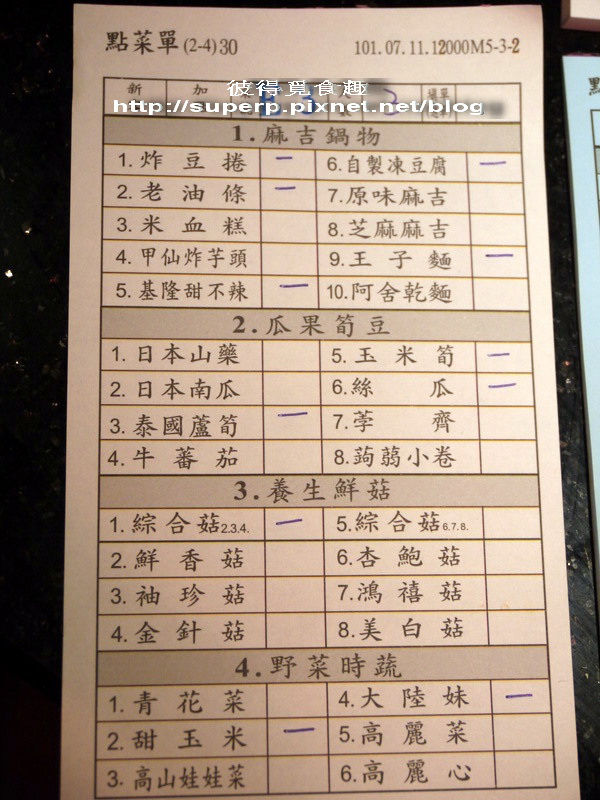 點菜單(2-4)30 101.07.11.12000M5-3-2
新 加
彼得覓食趣
http://superp.pixnet.net/blog
1.麻吉鍋物
1. 炸豆捲 一 6.自製凍豆腐 一
2. 老油條 一 7.原味麻吉
3. 米血糕 8.芝麻麻吉
4. 甲仙炸芋頭 9.王子麵 一
5. 基隆甜不辣 一 10.阿舍乾麵
2.瓜果筍豆
1. 日本山藥 5.玉米筍 一
2. 日本南瓜 6.絲瓜 一
3. 泰國蘆筍 一 7.荸薺
4. 牛蕃茄 8.蒟蒻小卷
3.養生鮮菇
1. 綜合菇2.3.4. 一 5.綜合菇6.7.8.
2. 鮮香菇 6.杏鮑菇
3. 袖珍菇 7.鴻禧菇
4. 金針菇 8.美白菇
4.野菜時蔬
1. 青花菜 4.大陸妹 一
2. 甜玉米 一 5.高麗菜
3. 高山娃娃菜 6.高麗心